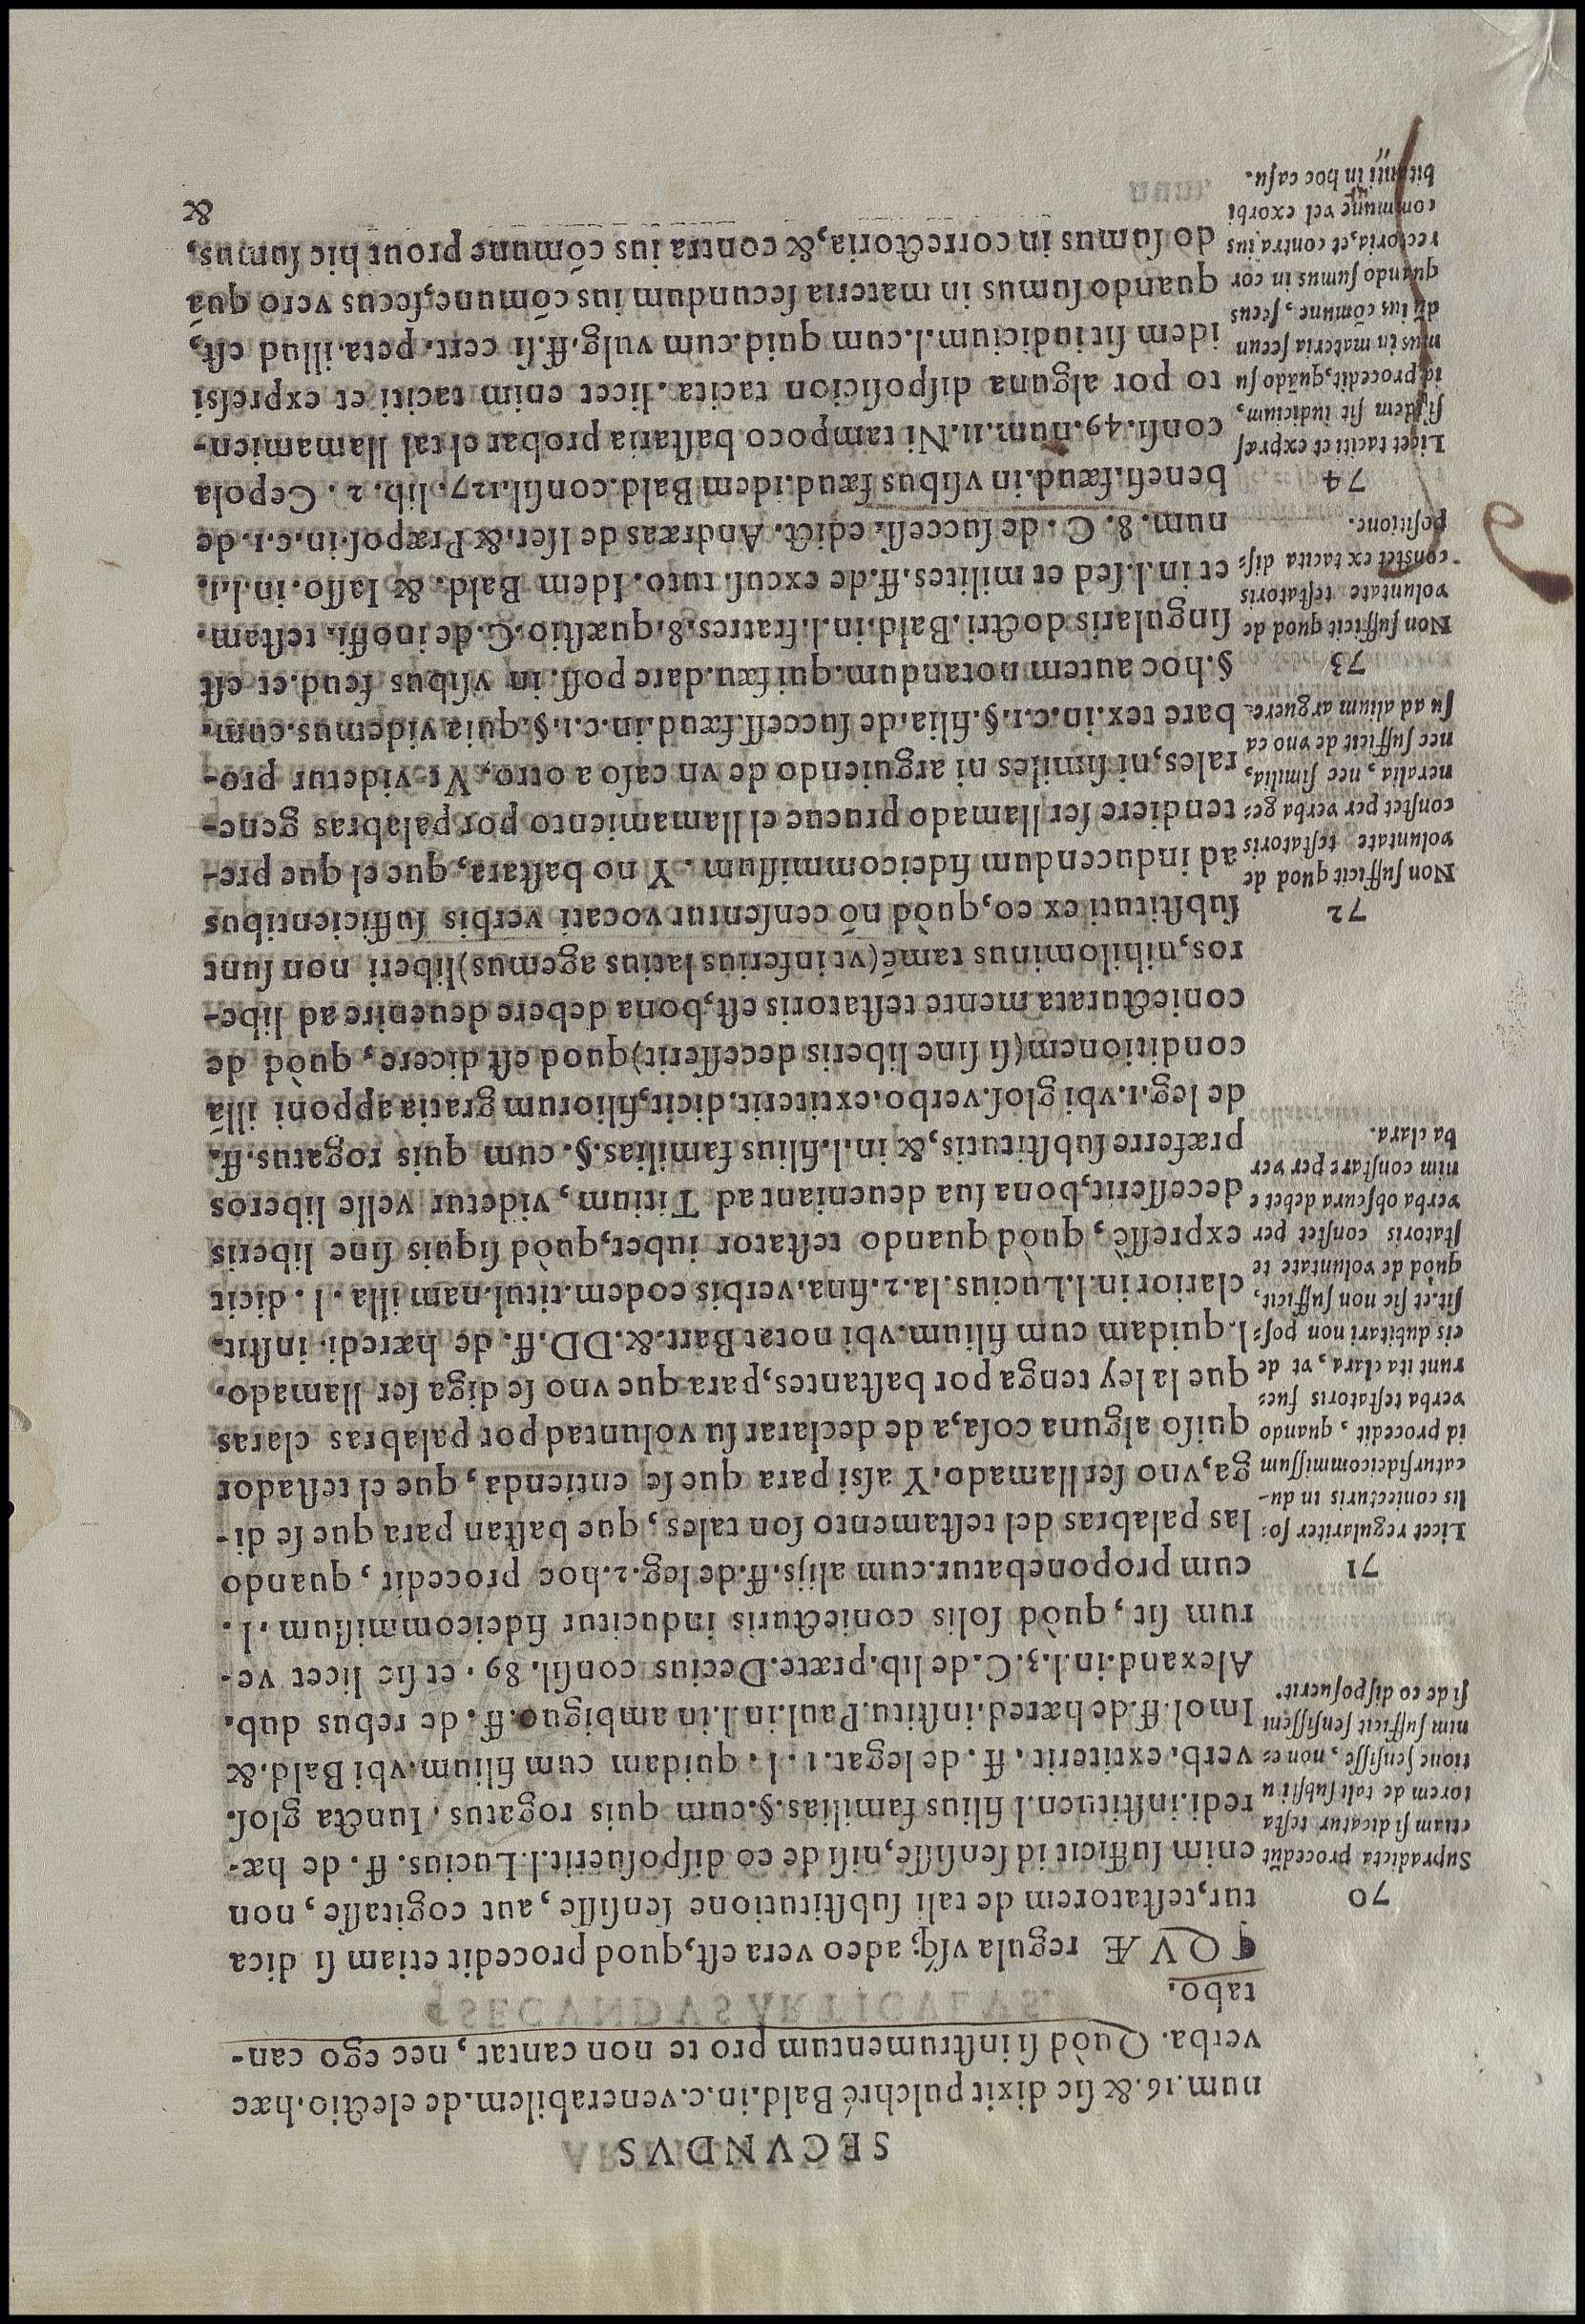 SECVNDVS
num.16.&ſic dixit pulchré Bald.in.c.venerabilem.de electio.hæc
verba. Quòd ſi inſtrumentum pro te non cantat, nec ego can-
tabo.
¶ QVÆ regula vſq; adeo vera eſt,quod procedit etiam ſi dica
tur,teſtatorem de tali ſubſtitutione ſenſiſſe, aut cogitaſſe, non
enim ſufficit id ſenſiſſe,niſi de eo diſpoſuerit.l.Lucius. ff. de hæ-
redi.inſtituen.l filius familias.§.cum quis rogatus. Iuncta gloſ.
verb. extiterit. ff. de legat. 1. l. quidam cum filium.vbi Bald.&
Imol.ff.de hæred.inſtitu.Paul.in.l.in ambiguo.ff. de rebus dub.
Alexand.in.l.3.C.de lib.præte.Decius conſil. 89. et ſic licet ve-
rum ſit, quòd ſolis coniecturis inducitur fideicommiſſum. l.
cum proponebatur.cum alijs.ff.de leg.2.hoc procedit, quando
las palabras del teſtamento ſon tales, que baſtan para que ſe di-
ga,vno ſer llamado. Y aſsi para que ſe entienda, que el teſtador
quiſo alguna coſa,a de declarar ſu voluntad por palabras claras
que la ley tenga por baſtantes,para que vno ſe diga ſer llamado.
l.quidam cum filium.vbi notat Bart.&.DD.ff. de hæredi. inſtit.
clarior in.l.Lucius.la.2.fina.verbis eodem.titul.nam illa. l. dicit
expreſſè, quòd quando teſtator iubet,quòd ſiquis ſine liberis
deceſſerit,bona ſua deueniant ad Titium, videtur velle liberos
præferre ſubſtitutis,& in.l.filius familias.§. cum quis rogatus.ff.
de leg.1.vbi gloſ.verbo.extiterit.dicit,filiorum gratia apponi illá
conditionem(ſi ſine liberis deceſſerit)quod eſt dicere, quòd de
coniecturata mente teſtatoris eſt,bona debere deuenire ad libe-
ros,nihilominus tamé(vt inferius latius agemus)liberi non ſunt
ſubſtituti ex eo,quòd nó cenſentur vocati verbis ſufficientibus
ad inducendum fideicommiſſum. Y no baſtara, que el que pre-
tendiere ſer llamado prueue el llamamiento por palabras gene-
rales,ni ſimiles ni arguiendo de vn caſo a otro. Vt videtur pro-
bare tex.in.c.1.§.filia.de ſucceſſ.fæud.in.c.1.§.quia videmus.cum.
§.hoc autem notandum.qui fæu.dare poſſ.in vſibus feud.et eſt
ſingularis doctri.Bald.in.l.fratres.8.quæſtio.C.de inoffi. teſtam.
et in.l.ſed et milites.ff.de excuſ. tuto. Idem Bald. & Iaſſo.in.l.1.
num. 8. C. de ſucceſſ. edict. Andræas de Iſer.&Præpoſ.in.c.1.de
benefi.fæud.in vſibus fæud.idem Bald.conſil.127. lib. 2. Cepola
conſi.49.num.11.Ni tampoco baſtaria probar el tal llamamien-
to por alguna diſpoſicion tacita. licet enim taciti et expreſsi
idem ſit iudicium.l.cum quid.cum vulg.ff.ſi cert. peta.illud eſt,
quando ſumus in materia ſecundum ius cómune,ſecus vero quá
do ſumus in correctoria,& contra ius cómune prout hic ſumus,
&
70
Supradicta procedūt
etiam ſi dicatur teſta
torem de tali ſubſtitu
tione ſenſiſſe, non e=
nim ſufficit ſenſiſſent
ſi de eo diſpoſuerit.
71
Licet regulariter ſo=
lis coniecturis indu-
catur fideicommiſſum
id procedit, quando
verba teſtatoris fue=
runt ita clara, vt de
eis dubitari non poſ=
ſit.et ſic non ſufficit,
quòd de voluntate te
ſtatoris conſtet per
verba obſcura debet e
nim conſtare per ver
ba clara.
72
Non ſufficit quod de
voluntate teſtatoris
conſtet per verba ge=
neralia, nec ſimilia,
nec ſufficit de vno ca
ſu ad alium arguere.
73
Non ſufficit quod de
voluntate teſtatoris
conſtet ex tacita diſ=
poſitione.
74
Licet taciti et expreſ
ſi idem ſit iudicium,
id procedit,quādo ſu
mus in materia ſecun
dū ius cōmune, ſecus
quando ſumus in cor
rectoria,et contra ius
commune vel exorbi
bitanti in hoc caſu.